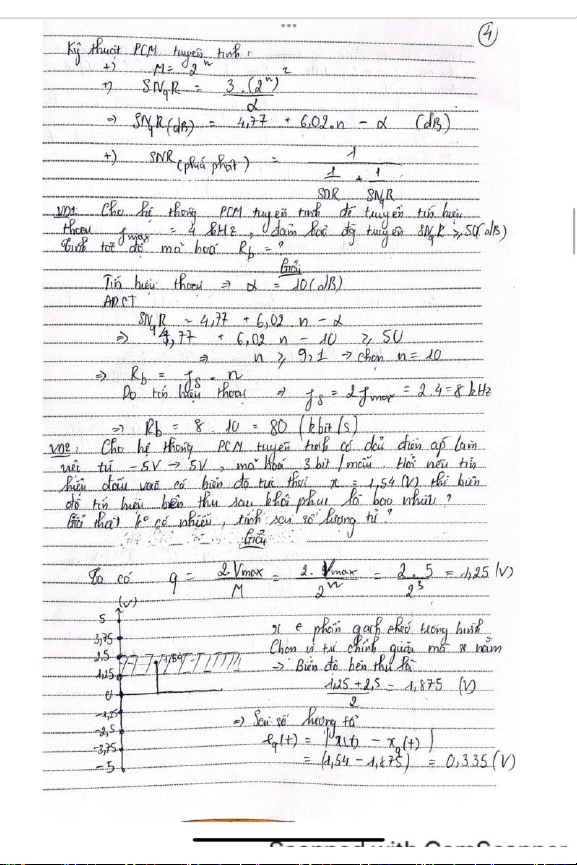 4
Kỹ thuật PCM tuyến tính:
+) M = 2^n
+) SNqR = 3.(2^n)^2 / α
⇒ SNqR(dB) = 4,77 + 6,02.n - α (dB)
+) SNR(phía phát) = 1 / (1/SDR + 1/SNqR)
VD1: Cho hệ thống PCM tuyến tính để truyền tín hiệu
thoại fmax = 4 kHz, đảm bảo độ tuyến SNqR ≥ 50(dB)
Tính tốc độ mã hoá Rb = ?
Giải
Tín hiệu thoại ⇒ α = 10(dB)
ADCT
SNqR = 4,77 + 6,02.n - α
⇒ 4,77 + 6,02 n - 10 ≥ 50
⇒ n ≥ 9,1 → chọn n = 10
⇒ Rb = fs . n
Do tín hiệu thoại ⇒ fs = 2fmax = 2.4 = 8 kHz
⇒ Rb = 8 . 10 = 80 (kbit/s)
VD2: Cho hệ thống PCM tuyến tính có dải điện áp làm
việc từ -5V → 5V, mã hoá 3 bit/mẫu. Hỏi nếu tín
hiệu đầu vào có biên độ tức thời x = 1,54 (V) thì biên
độ tín hiệu bên thu sau khôi phục là bao nhiêu?
Giả thiết ko có nhiễu, tính sai số lượng tử?
Giải
Ta có q = 2.Vmax / M = 2.Vmax / 2^n = 2.5 / 2^3 = 1,25 (V)
(V)
5
3,75
2,5
1,54
1,25
0
-1,25
-2,5
-3,75
-5
x ∈ phần gạch chéo trong hình
Chọn vị trí chính giữa mà x nằm
→ Biên độ bên thu là
(1,25 + 2,5) / 2 = 1,875 (V)
⇒ Sai số lượng tử
eq(t) = |x(t) - xq(t)|
= |1,54 - 1,875| = 0,335 (V)
Scanned with CamScanner